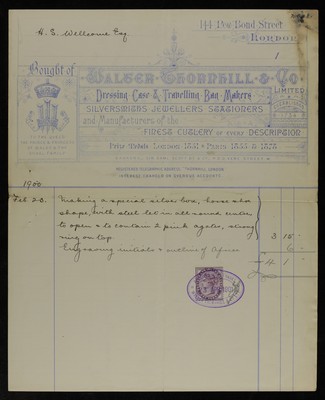 144 New Bond Street
London
H. S. Wellcome Esq.
1
Bought of
Walter Thornhill & Co
LIMITED
Dressing Case & Travelling Bag Makers
SILVERSMITHS JEWELLERS STATIONERS
and Manufacturers of the
FINEST CUTLERY OF EVERY DESCRIPTION
Prize Medals London 1851 & Paris 1855 & 1878
REGISTERED TELEGRAPHIC ADDRESS THORNHILL LONDON
1900
Feb 20. Making a special silver box, horse shoe
shape, with steel let in all round outer
to open & to contain 2 pink agates, strong
ring on top. 3 15 -
Engraving initials & outline of Africa 6 -
4 1